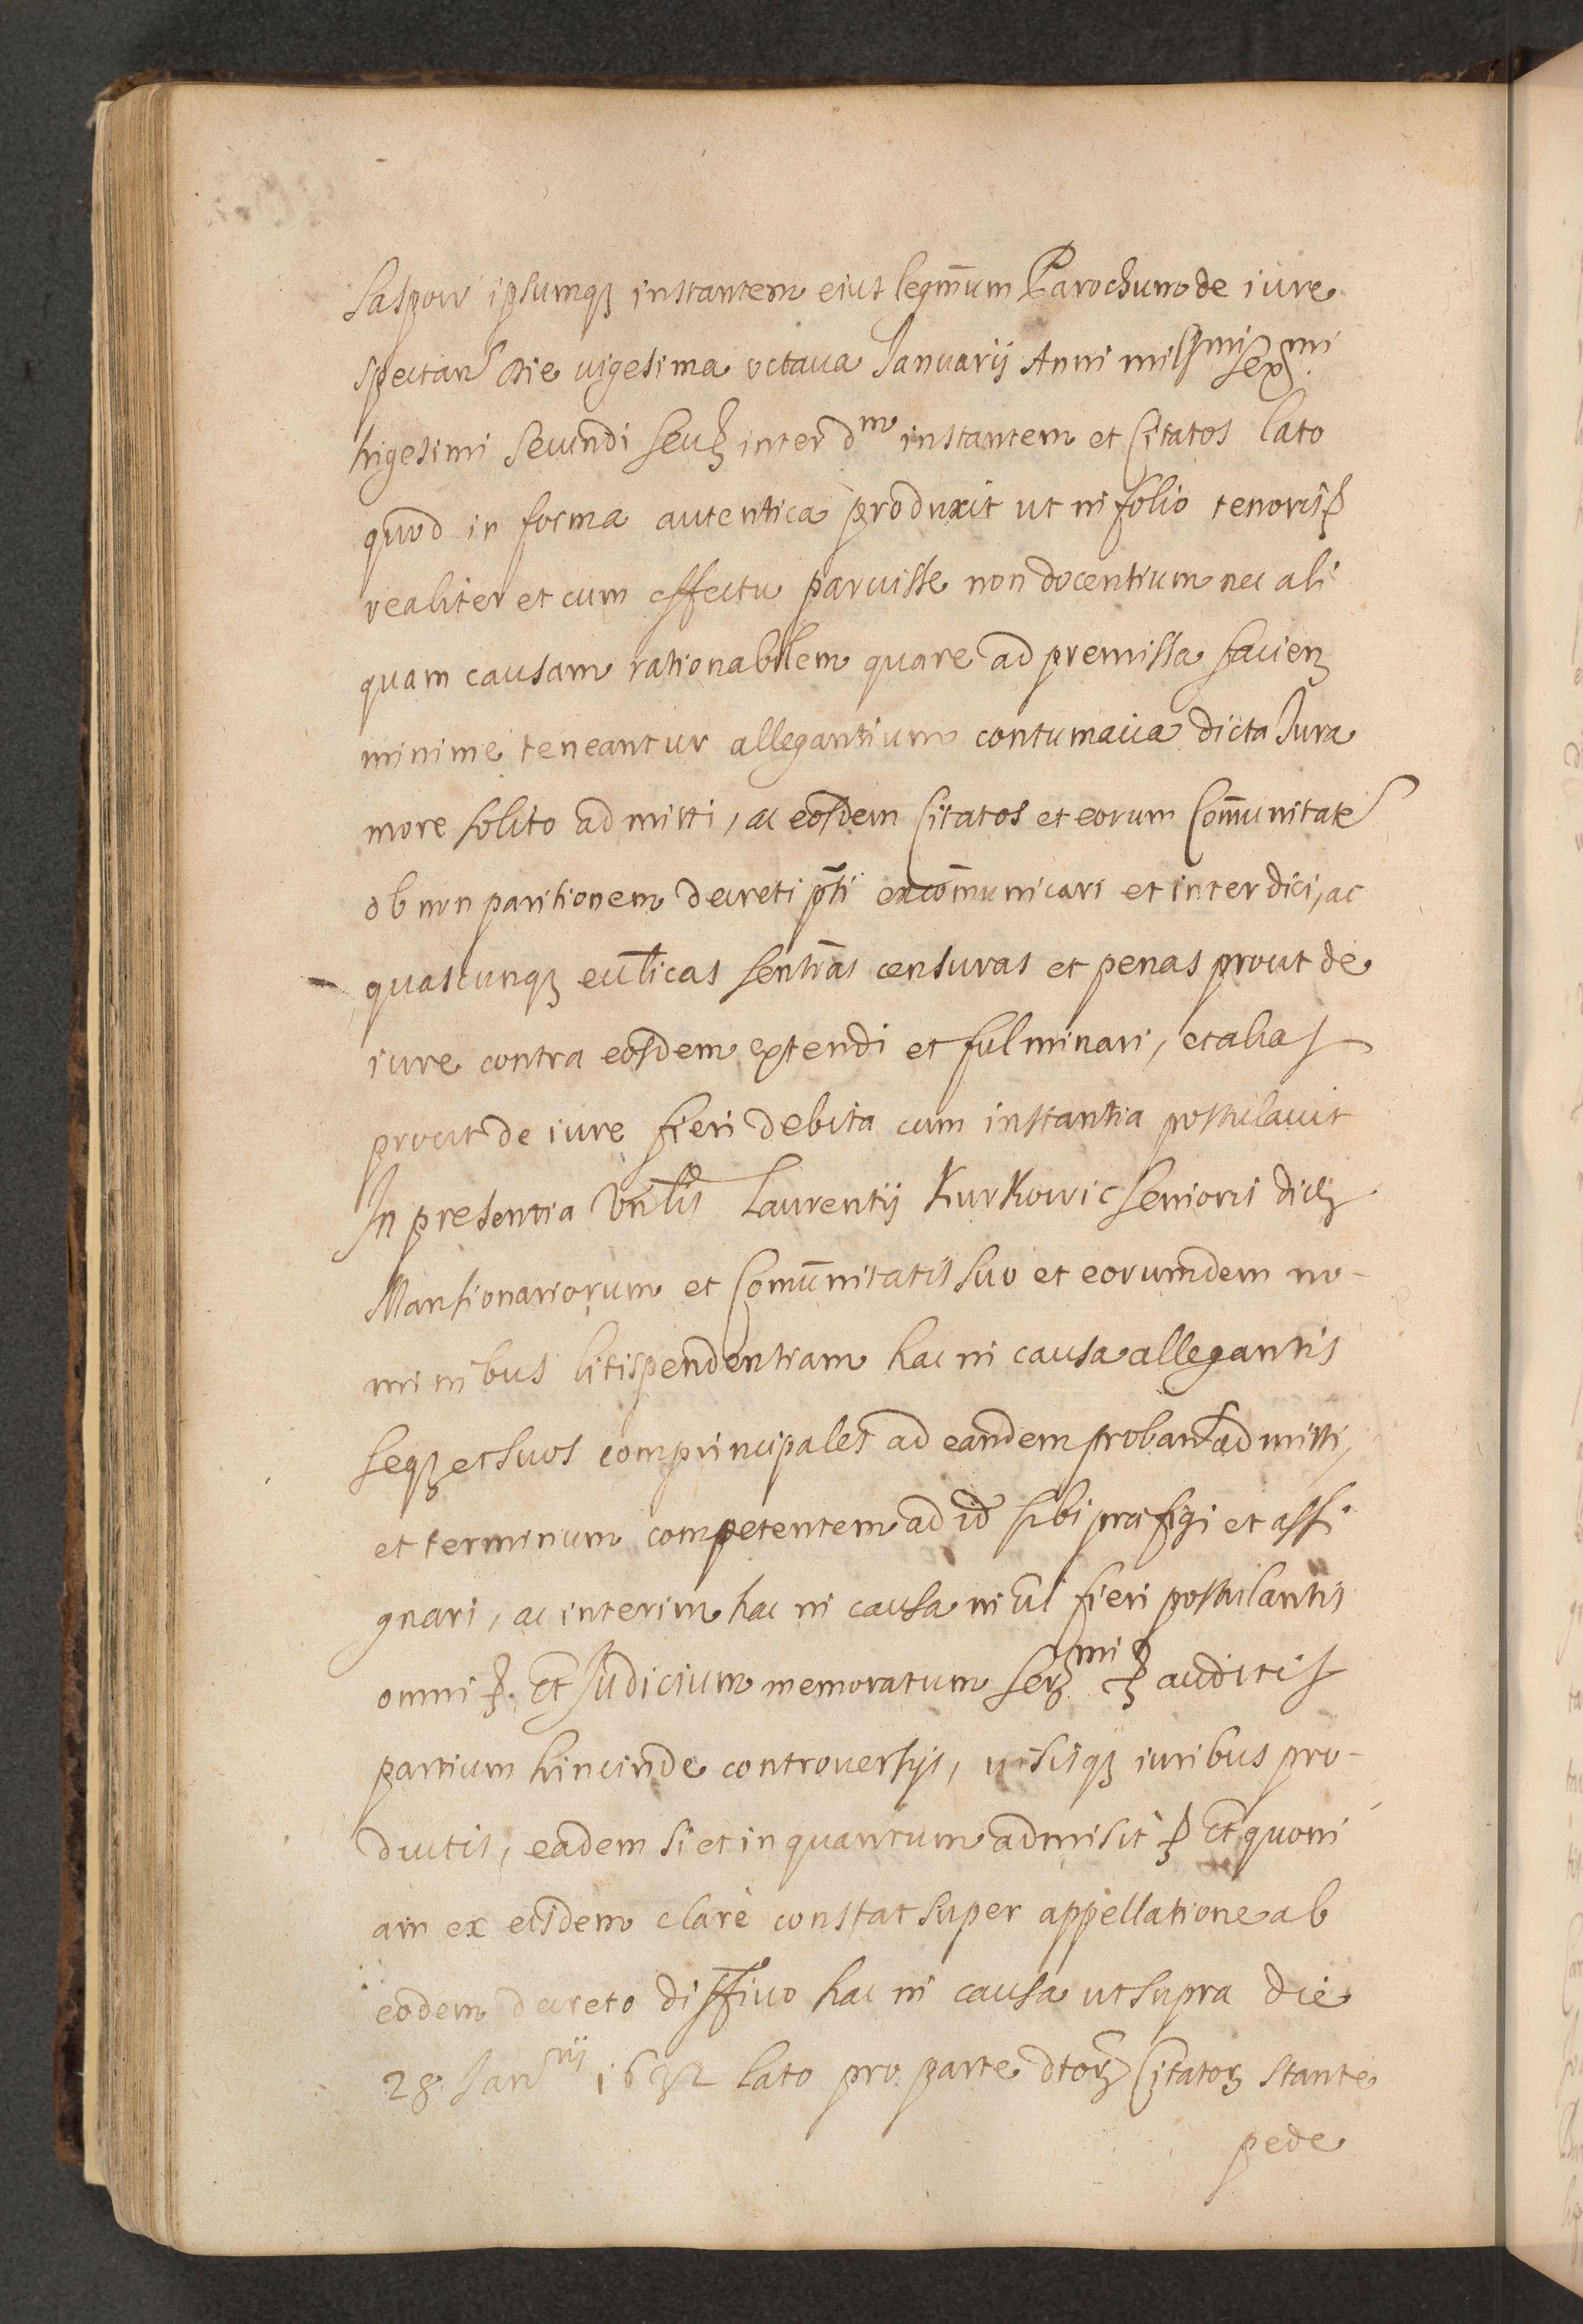 Saspow ipsumq₃ instantem eius legit̄mum Parochum de iure
spectan die vigesima octaua Januarij Anni mill^mi sex^mi
trigesimi secundi inter d^m instantem et Citatos lato
quod in forma autentica produxit ut in folio tenoris
realiter et cum effectu paruisse non docentium nec ali
quam causam rationabilem quare ad premissa facien₃
minime teneantur allegantium contumacia dicta Jura
more solito admitti, ac eosdem Citatos et eorum Com̄unitate
ob non paritionem decreti p̄ti excom̄unicari et interdici, ac
quascunq₃ eccl̄icas sentn̄as censuras et penas prout de
iure contra eosdem extendi et fulminari, et alia
prout de iure fieri debita cum instantia postulauit
In presentia Vn̄blis Laurentij Kurkowic senioris
Mansionariorum et Comūnitatis suo et eorumdem no-
minibus litispendentiam hac in causa allegantis
seq₃ et suos comprincipales ad eandem proband admitti,
et terminum competentem ad id sibi præfigi et assi
gnari, ac interim hac in causa nil fieri postulantis
omni Et Judicium memoratum auditis
partium hincinde controuersijs, uisisq₃ iuribus pro-
ductis, eadem si et in quantum admisit Et quoni
am ex eisdem clarè constat super appellatione ab
eodem decreto diffiuo hac in causa ut supra die
28 Jan^rij 1632 lato pro parte dtor₃ Citator₃ stante
pede